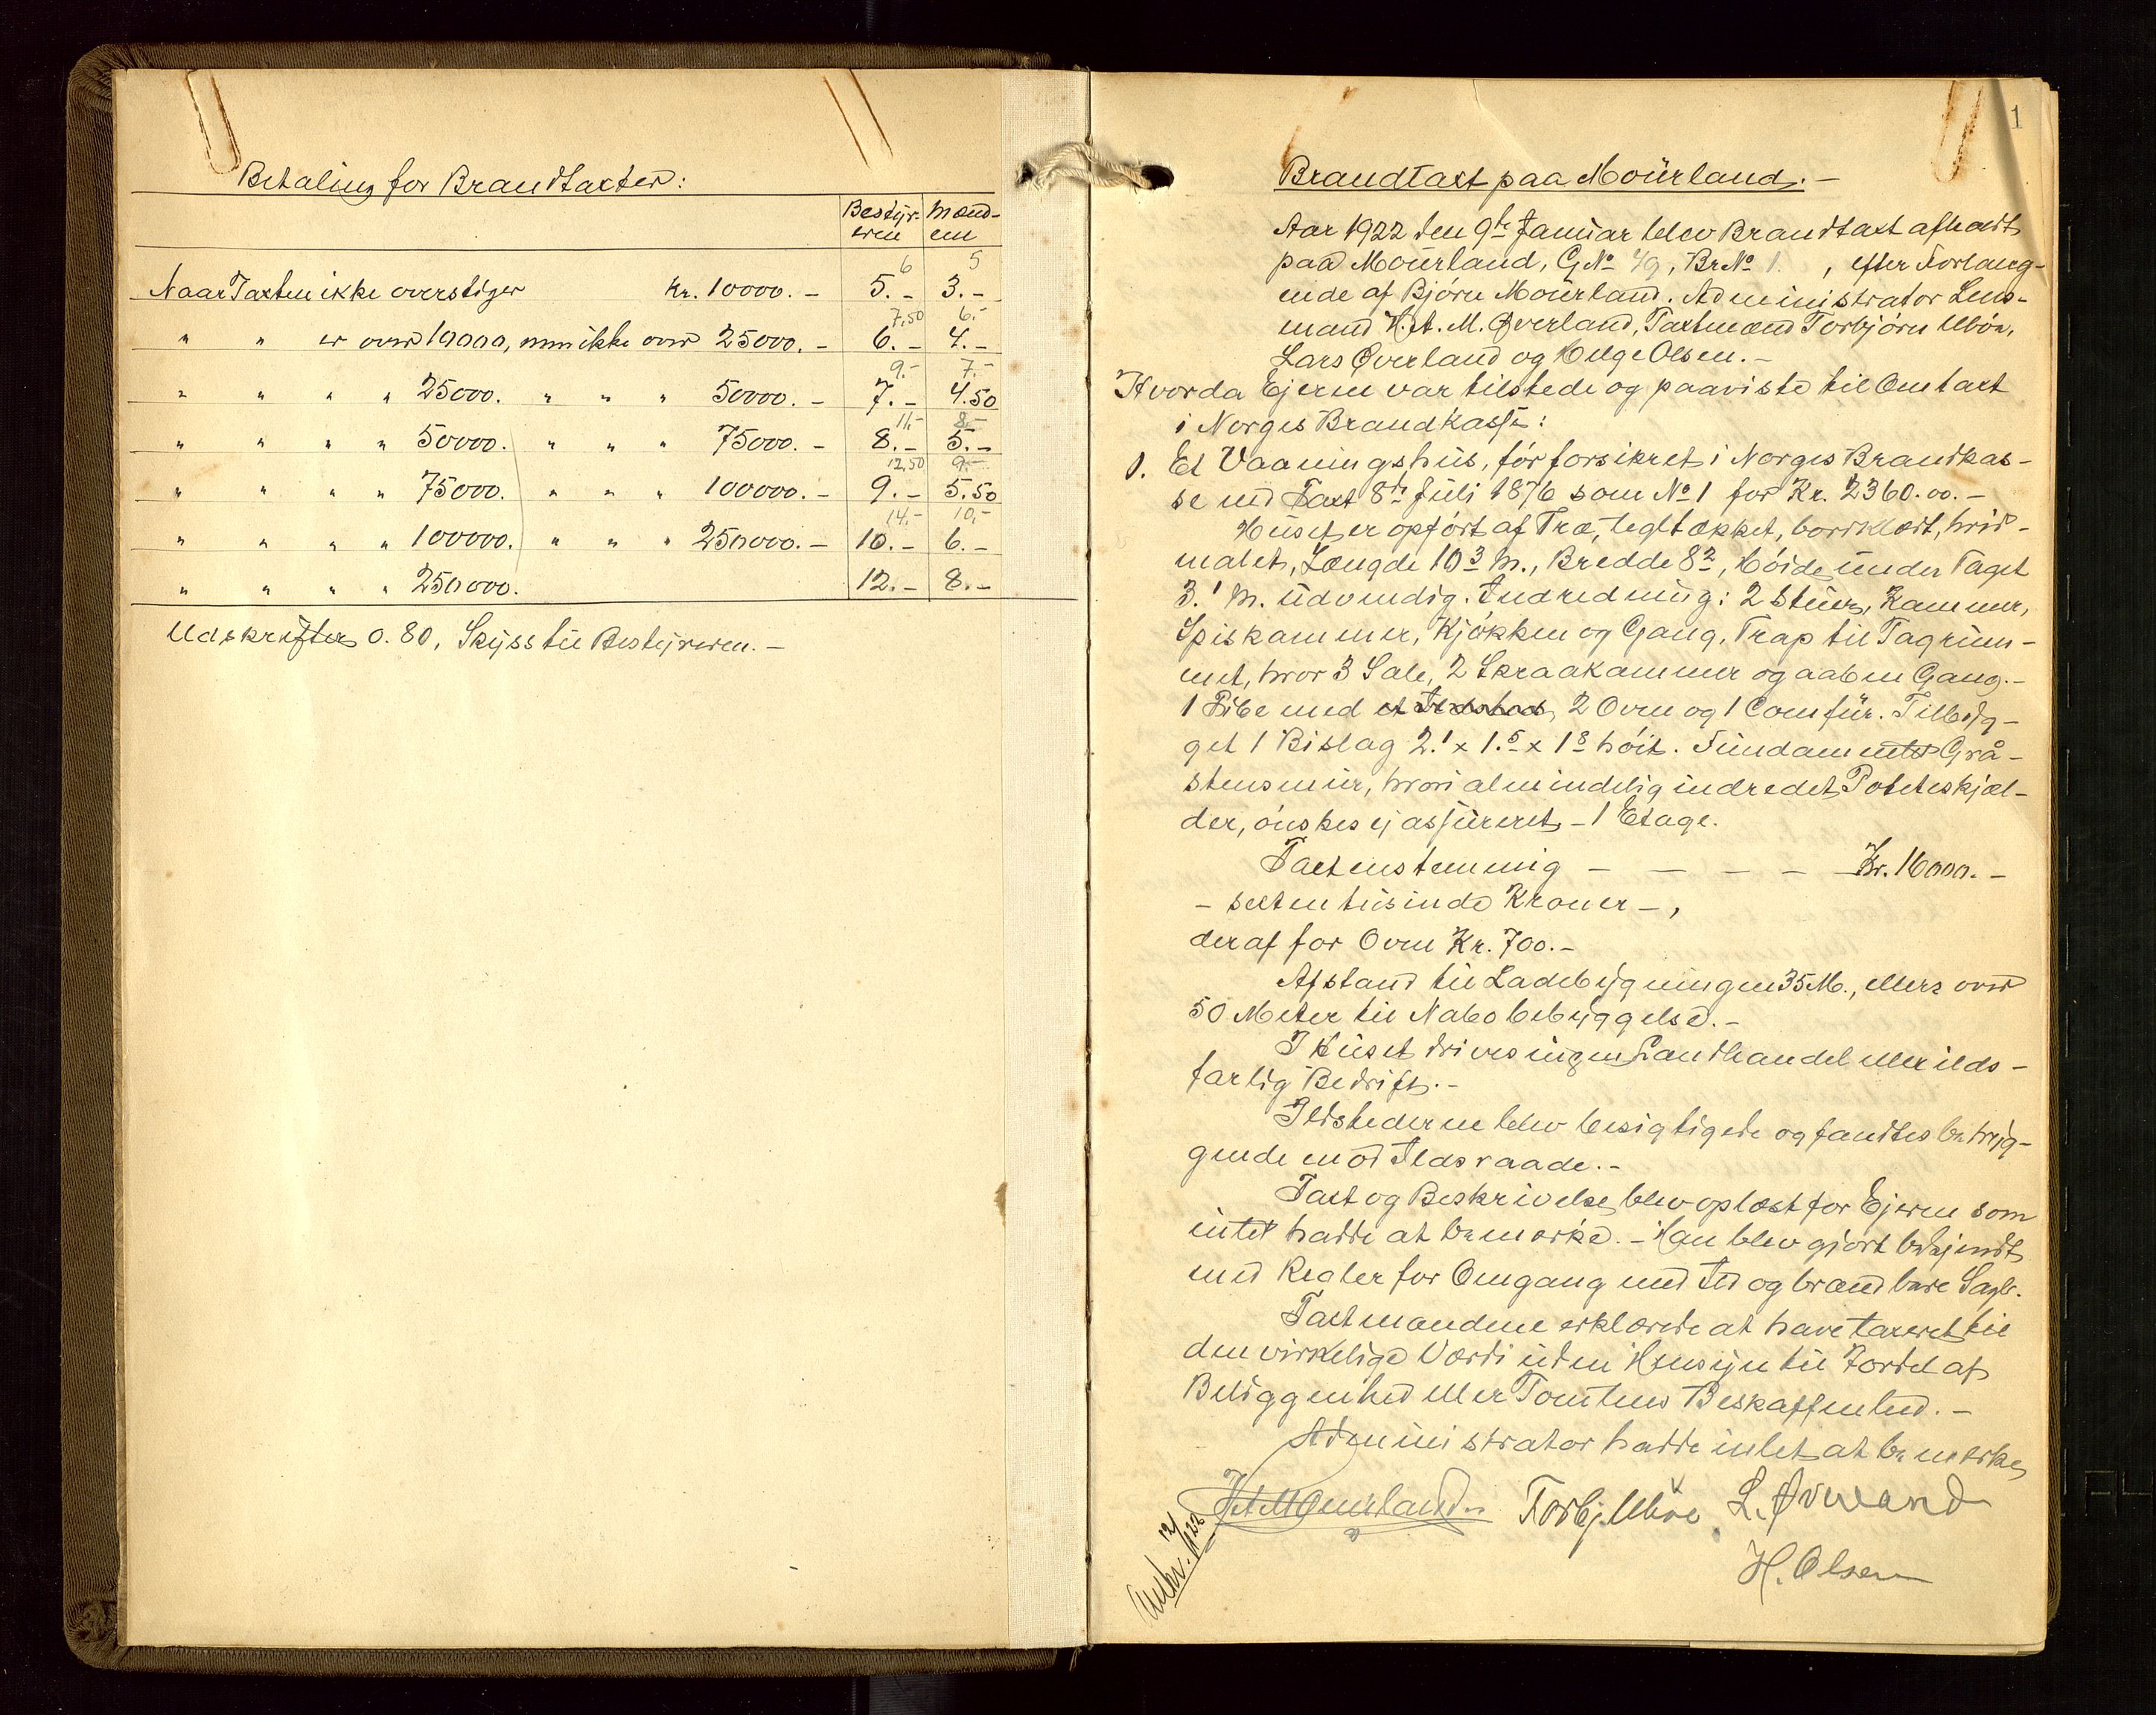 Betaling for Brandtaxter:
Bestyr- Mænd-
eren ene
6 5
Naar Taxten ikke overstiger Kr. 10000.- 5.- 3.-
7,50 6.-
" " er over 10000, men ikke over 25000.- 6.- 4.-
9.- 7.-
" " " " 25000. " " " 50000.- 7.- 4.50
11,- 8.-
" " " " 50000. " " " 75000.- 8.- 5.-
12,50 9.-
" " " " 75000. " " " 100000.- 9.- 5.50
14.- 10,-
" " " " 100000. " " " 250000.- 10.- 6.-
" " " " 250000. 12.- 8.-
Udskrifter 0.80, Skyss til Bestyreren.-
1
Brandtaxt paa Mourland.-
Aar 1922 den 9de Januar blev Brandtaxt afholdt
paa Mourland, G.No 49, Br.No 1. , efter Forlang-
ende af Bjørn Mourland. Administrator Lens-
mand H. A. M. Øverland, Taxtmænd Torbjørn
Lars Øverland og Helge Olsen.-
Hvorda Ejeren var tilstede og paaviste til Omtaxt
i Norges Brandkasse:
1. Et Vaaningshus, før forsikret i Norges Brandkas-
se ved Taxt 8de Juli 1876 som No 1 for Kr. 2360.00.-
Huset er opført af Træ, tegltækket, bordklædt, hvid-
malet, Længde 10.3 M., Bredde 8.2, Høide under Taget
3.1 M. udvendig. Indredning: 2 Stuer, Kammer,
Spiskammer, Kjøkken og Gang. Trap til Tagrum-
met, hvor 3 Sale, 2 Skraakammer og aaben Gang.-
1 Pibe med et Ildsted, 2 Ovne og 1 Comfur. Tilbyg-
get 1 Bislag 2.1 x 1.5 x 1.8 høit. Fundamentet Grå-
stensmur, hvori almindelig indredet Poteteskjæl-
der, ønskes ej assureret - 1 Etage.
Taxt enstemmig - - - - Kr. 16000.-
- sexten tusinde Kroner -,
deraf for Ovne Kr. 700.-
Afstand til Ladebygningen 35 M., ellers over
50 Meter til Nabobebyggelse.-
I Huset drives ingen Landhandel eller ilds-
farlig Bedrift.-
Ildstederne blev besigtigede og fandtes betryg-
gende mod Ildsvaade.-
Taxt og Beskrivelse blev oplæst for Ejeren som
intet hadde at bemærke.- Han blev gjort bekjendt
med Regler for Omgang med Ild og brændbare Sager.
Taxtmændene erklærede at have taxeret til
den virkelige Værdi uden Hensyn til Fordel af
Beliggenhed eller Tomtens Beskaffenhed.-
Administrator hadde intet at bemærke
H.A.M. Øverland. L. Øverland
H. Olsen